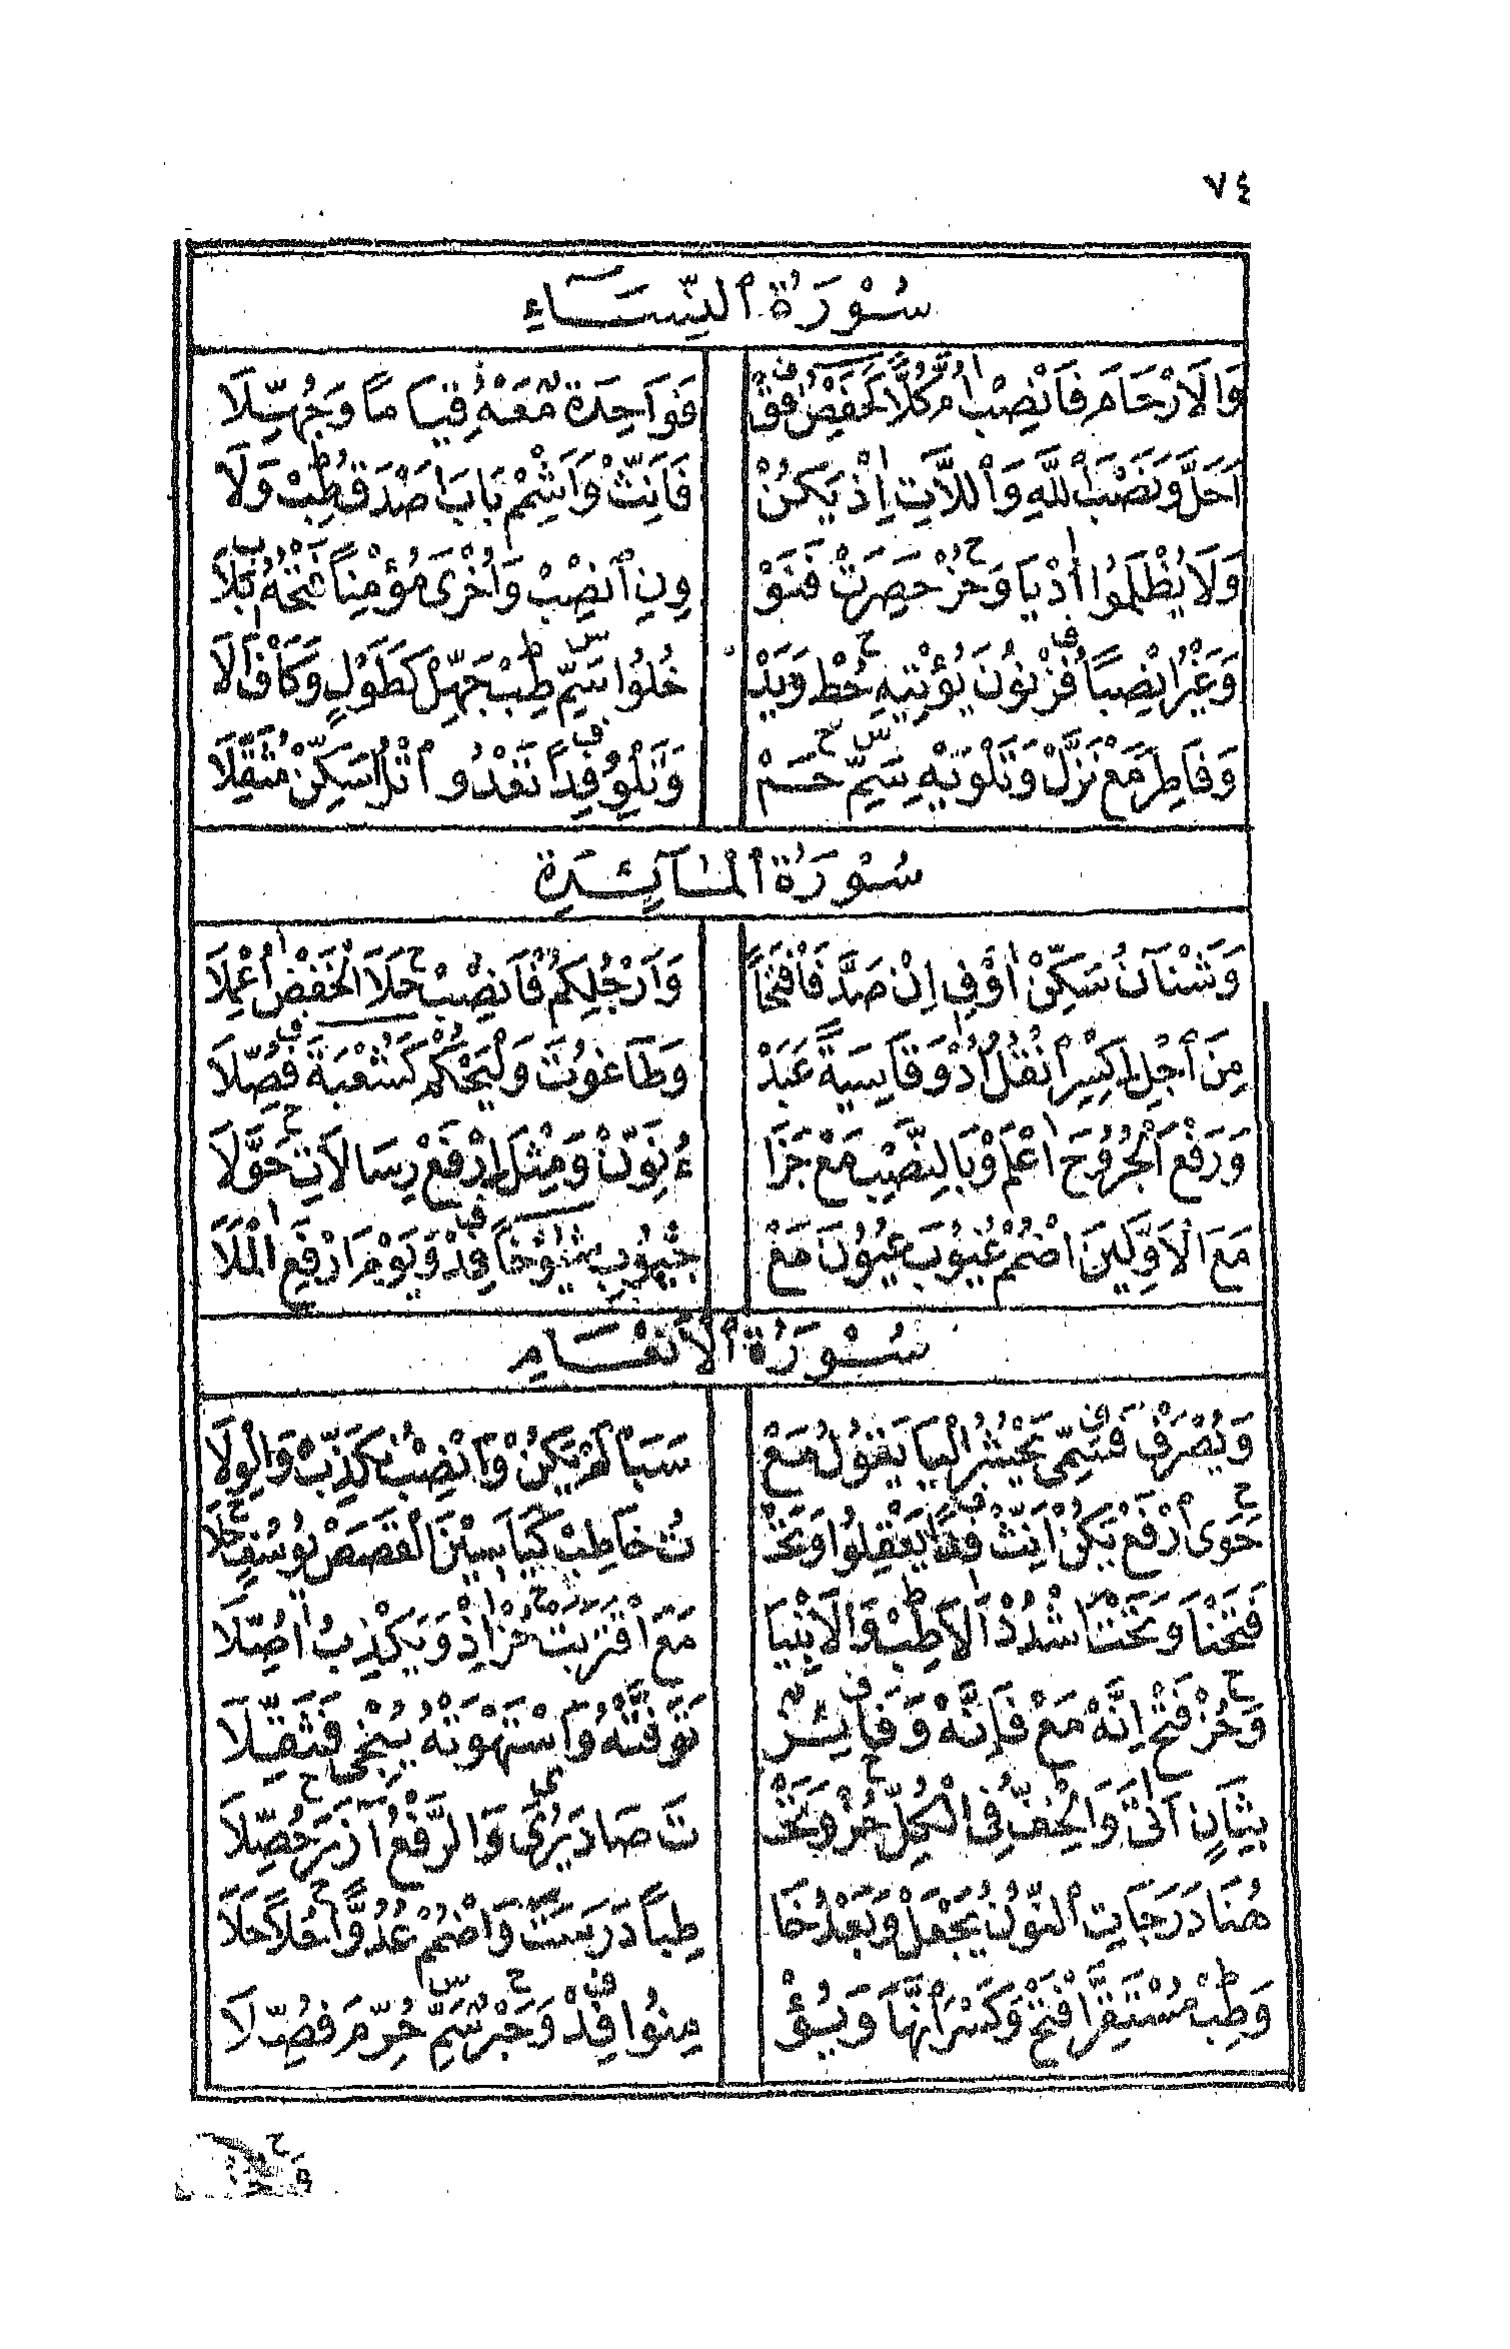 ٧٤
سُوْرَةُ ٱلنِّسَآءِ
وَالَارْحَامَ فَانْصِبْ أُمَّ كُلًّا كَحَفْصٍ فُقْ فَوَاحِدَةٌ مَعْهُ قِيَامًا وَجُهِّلَا
أَحَلَّ وَنَصْبَ ٱللَّهِ وَٱللَّاتِ إِذْ يَكُنْ فَأَنِّثْ وَأَشْمِمْ بَابَ أَصْدَقُ طِبْ وَلَا
وَلَا يُظْلَمُوا أُدْ يَا وَحُزْ حَصِرَتْ فَنَوْ وِنِ ٱنْصِبْ وَأُخْرَى مُؤْمِنًا فَتْحُهُ بَلَا
وَغَيْرُ ٱنْصِبًا فُزْ نُوْنَ يُؤْتِيْهِ حُطْ وَيَدْ خُلُوْا سَمِّ طِبْ جَهِّلْ كَطَوْلٍ وَكَافَ الَا
وَفَاطِرَ مَعْ نَزَّلْ وَتِلْوَيْهِ سَمِّ حُمْ وَتَلْوُوْ فِدًا تَعْدُو ٱتْلُ سَكِّنْ مُثَقِّلَا
سُوْرَةُ ٱلْمَآئِدَةِ
وَشَنْآنُ سَكِّنْ أَوْفِ إِنْ صَدَّ فَافْتَحًا وَأَرْجُلِكُمْ فَانْصِبْ حَلَا ٱلْخَفْضُ أُعْمِلَا
مِنَ ٱجْلِ ٱكْسِرِ ٱنْقُلْ أُدْ وَقَاسِيَةً عَبَدْ وَطَاغُوْتَ وَلْيَحْكُمْ كَشُعْبَةَ فُصِّلَا
وَرَفْعَ ٱلْجُرُوْحَ ٱعْلَمْ وَبِالنَّصْبِ مَعْ جَزَا ءُ نَوِّنْ وَمِثْلِ ٱرْفَعْ رِسَالَاتِ حُوِّلَا
مَعَ الْاَوَّلِيْنَ اضْمُمْ غُيُوْبِ عُيُوْنَ مَعْ جُيُوْبِ شُيُوْخًا فِدْ وَيَوْمَ ارْفَعِ ٱلْمَلَا
سُوْرَةُ ٱلْأَنْعَامِ
وَيُصْرَفْ فَسَمِّى نَحْشُرُ الْيَا نَقُوْلُ مَعْ سَبَأْ لَمْ يَكُنْ وَانْصِبْ نُكَذِّبُ وَالْوِلَا
حَوَى ٱرْفَعْ يَكُنْ أَنِّثْ فِدًا يَعْقِلُوْا وَتَحْ تُ خَاطِبْ كَيَاسِيْنَ الْقَصَصْ يُوْسُفٍ حَلَا
فَتَحْنَا وَتَحْتُ اشْدُدْ أَلَا طِبْ وَالَانْبِيَا مَعَ ٱقْتَرَبَتْ حُزْ إِذْ وَيَكْذِبُ أُصِّلَا
وَحُزْ فَتْحَ إِنَّهْ مَعْ فَإِنَّهْ وَفَائِزْ تَوَفَّتْهُ وَٱسْتَهْوَتْهُ يُنْجِى فَثَقِّلَا
بِثَانٍ أَتَى وَالْخِفُّ فِى الْكُلِّ حُزْ وَتَحْ تَ صَادَ يَرَى وَالرَّفْعُ آزَرَ حُصِّلَا
هُنَا دَرَجَاتِ ٱلنُّوْنُ يَجْعَلْ وَبَعْدُ خَا طِبًا دَرَسَتْ وَاضْمُمْ عُدُوًّا حُلًا حَلَا
وَطِبْ مُسْتَقِرٌّ افْتَحْ وَكَسْرَ ٱنَّهَا وَيُؤْ مِنُوْا فِدْ وَحَبْرٌ سَمِّ حُرِّمَ فُصِّلَا